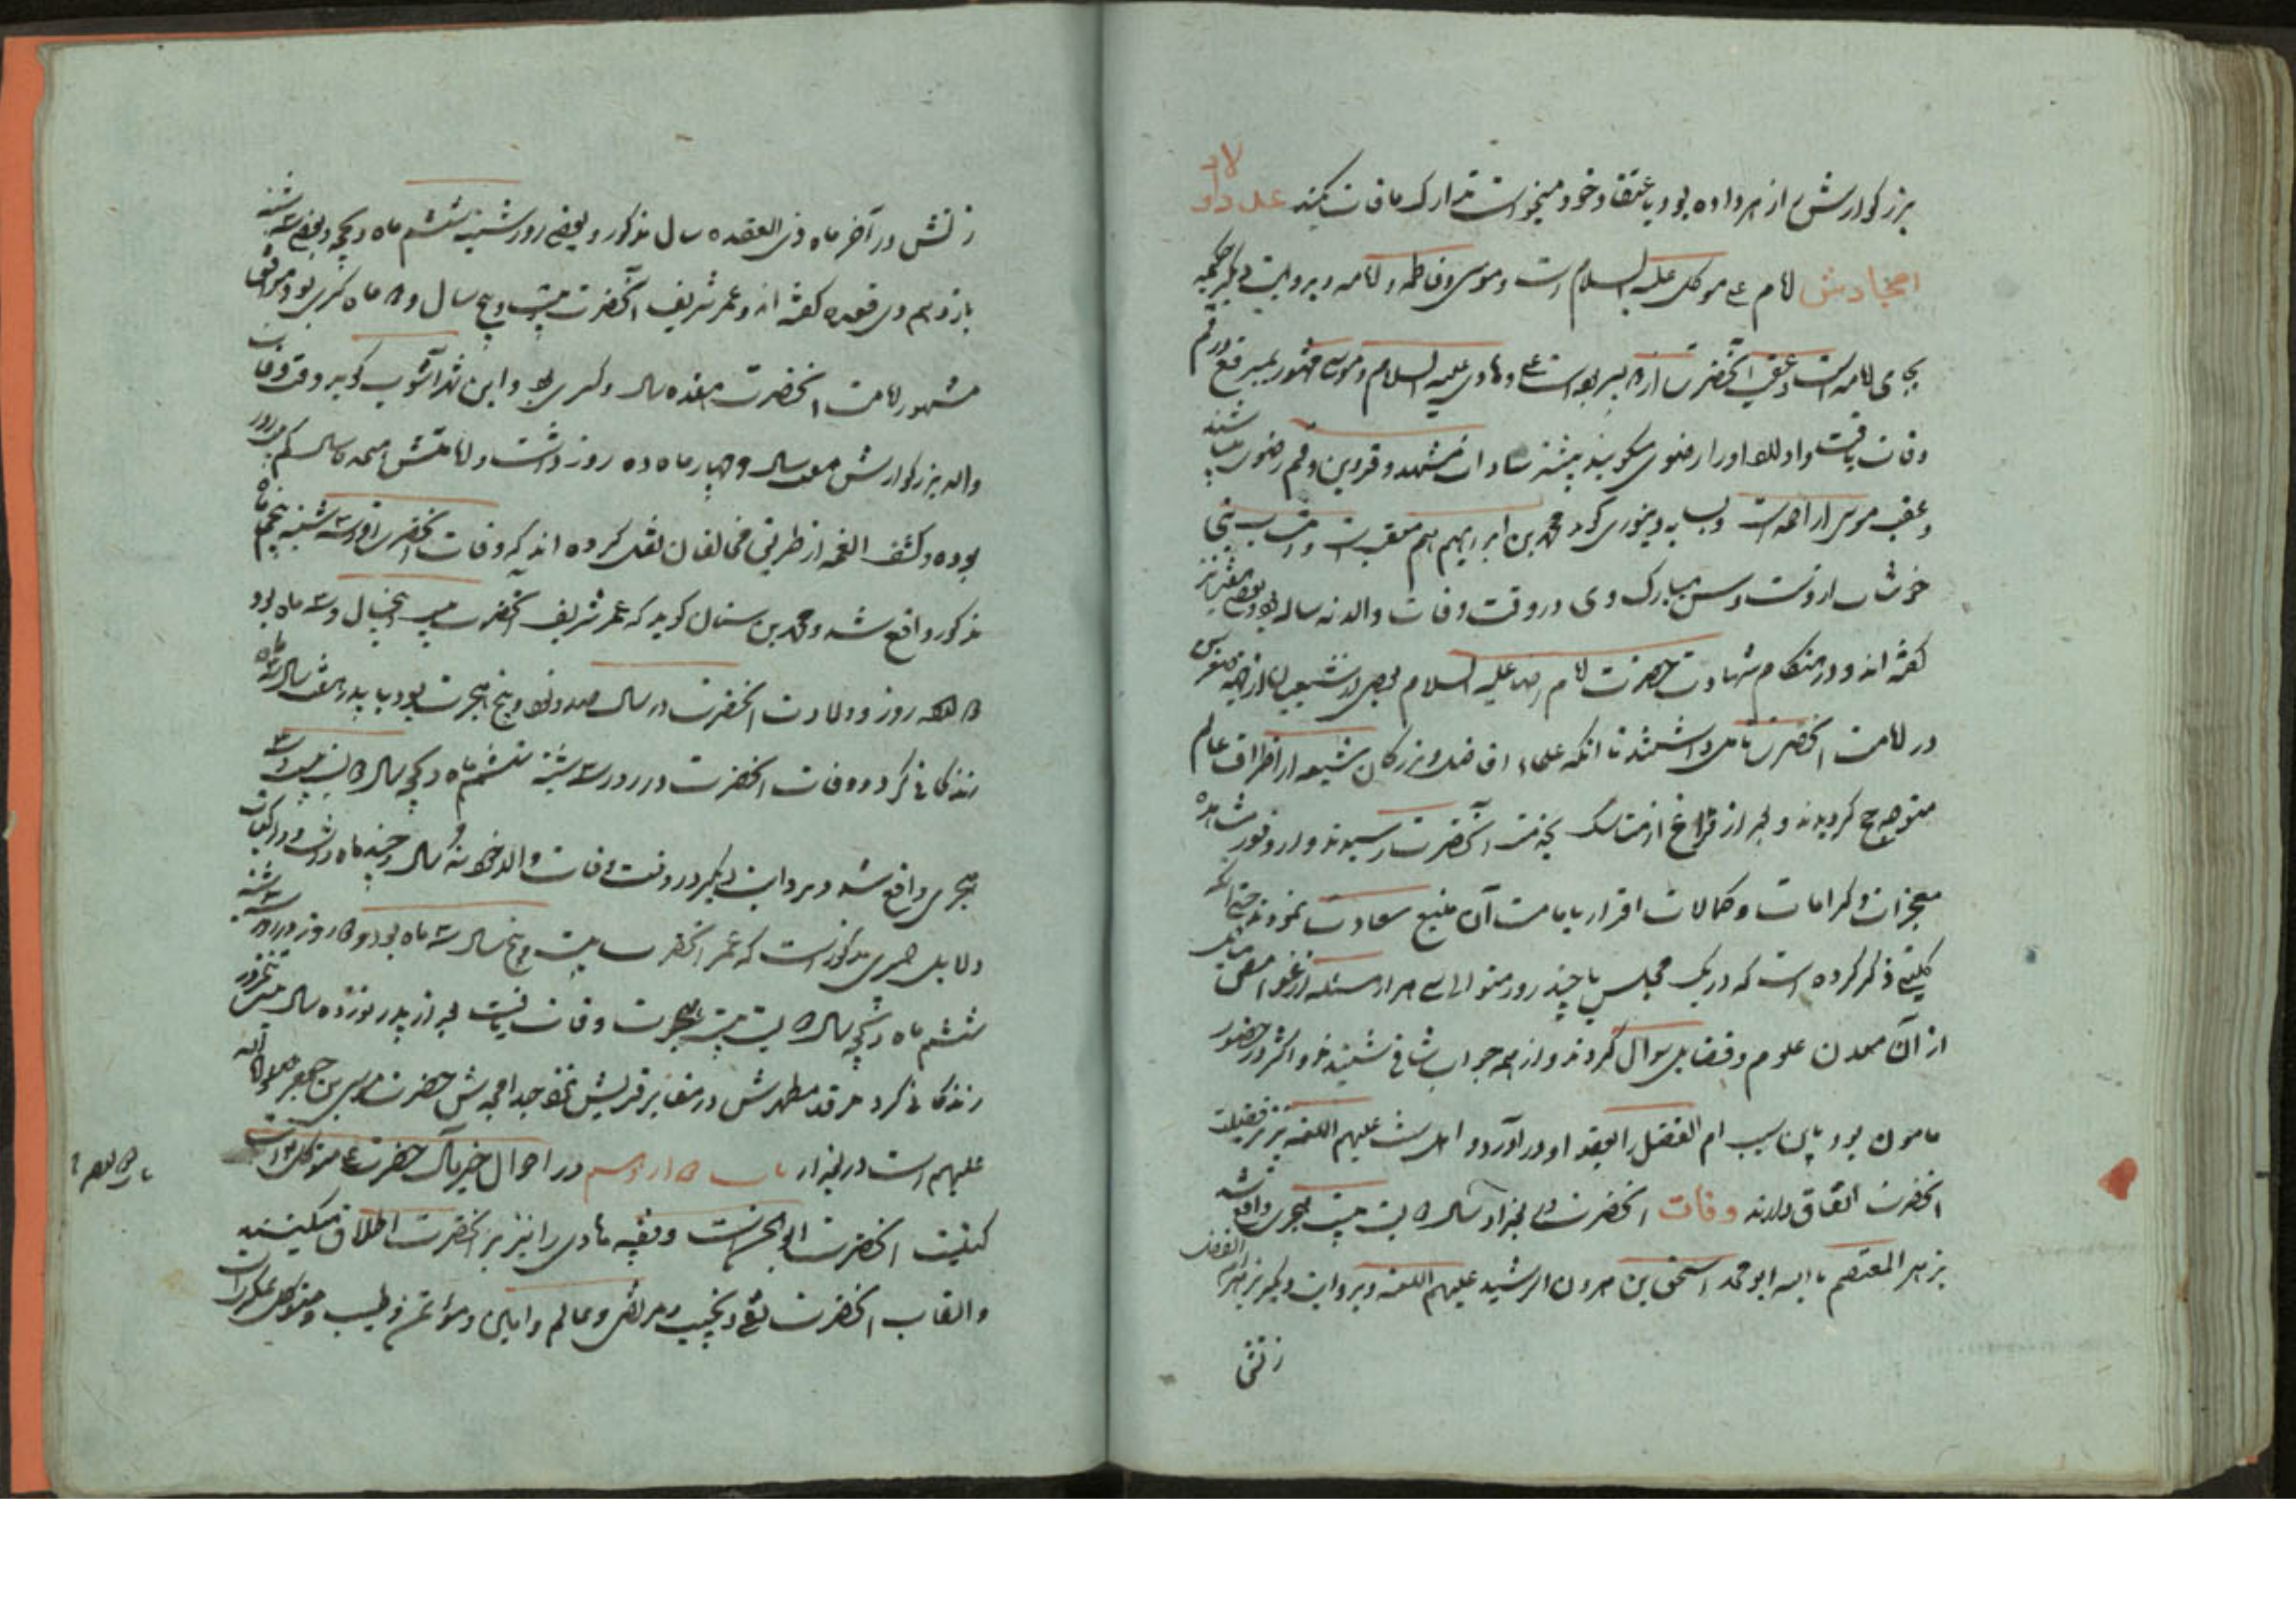 بزرگوارش زهر داده بود باعتقاد خود میخواست تدارک مافات کند عدد اولاد
امجادش امام علی متوکل علیه السلام است و موسی و فاطمه و امامه و بروایت دیگر حکیمه
بجای امامه است و عقب آنحضرت از دو پسر بود است علی هادی علیه السلام و موسی مشهور بمبرقع در قم
وفات یافت و اولاد او را رضوی میگویند بیشتر سادات مشهد و قزوین و قم رضوی میباشند
و عقب موسی از احمد است و محمد بن ابراهیم هم معقب است و نسب بنی
خوشاب از وست و سن مبارک وی در وقت وفات والد نه ساله بود و بعضی هفت نیز
گفته اند و در هنگام شهادت حضرت امام رضا علیه السلام بعضی از شیعیان از صغر سن
در امامت آنحضرت تامل داشتند تا آنکه علماء و افاضل و بزرگان شیعه از اطراف عالم
متوجه حج گردیدند و بعد از فراغ از مناسک بخدمت آنحضرت رسیدند و از وفور مشاهده
معجزات و کرامات و کمالات اقرار بامامت آن منبع سعادت نمودند حتی آنکه
کلینی ذکر کرده است که در یک مجلس یا چند روز متوالی سی هزار مسئله از غوامض مسایل
از آن معدن علوم و فضایل سوال کردند و از همه جواب شافی شنیدند و اکثر در حضور
مامون بود باین سبب ام الفضل را بعقد او در آورد و اهل سنت علیهم اللعنه نیز بر فضیلت
آنحضرت اتفاق دارند وفات آنحضرت در بغداد سال دویست بیست هجری واقع شد
بزهر المعتصم بالله ابو محمد اسحق بن هرون الرشید علیهم اللعنه و بروایت دیگر بزهر ام الفضل
زنش
زنش در آخر ماه ذی القعده سال مذکور و بعضی روز شنبه ششم ماه ذیحجه و بعضی سه شنبه
یازدهم ذی قعده گفته اند و عمر شریف آنحضرت بیست و پنج سال و دو ماه کسری بود و موافق
مشهور امامت آنحضرت هفده سال و کسری بود و ابن شهر آشوب گوید در وقت وفات
والد بزرگوارش هفت سال و چهار ماه و دو روز داشت و امامتش هیجده سال کم بیست روز
بوده و در کشف الغمه از طریق مخالفان نقل کرده اند که وفات آنحضرت روز سه شنبه پنجم ماه
مذکور واقع شد و محمد بن سنان گوید که عمر شریف آنحضرت بیست و پنج سال و سه ماه بود
دوازده روز و ولادت آنحضرت در سال صد و نود و پنج هجرت بود با پدر هفت سال و سه ماه
زندگانی کرد و وفات آنحضرت در روز سه شنبه ششم ماه ذیحجه سال دویست بیست
هجری واقع شد و بروایت دیگر در وقت وفات والد خود نه سال و چند ماه داشت و در کتاب
دلایل حمیری مذکور است که عمر آنحضرت بیست و پنج سال سه ماه بود و دوازده روز در روز سه شنبه
ششم ماه ذیحجه سال دویست بیست هجرت وفات یافت بعد از پدر نوزده سال
زندگانی کرد مرقد مطهرش در مقابر قریش نزد جد امجدش حضرت موسی بن جعفر صلوات الله
علیهم است در بغداد باب دوازدهم در احوال خیر مآل حضرت علی متوکل است
کنیت آنحضرت ابو الحسن است و نقیه هادی را نیز بر آنحضرت اطلاق میکنند
والقاب آنحضرت نقی و نجیب و مرتضی و عالم و امین و مؤتمن و طیب و متوکل عسکری است